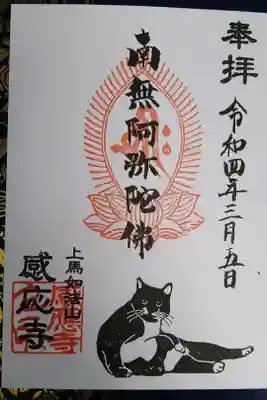 奉拝
令和四年三月五日
南無阿弥陀佛
上馬如法山
感応寺